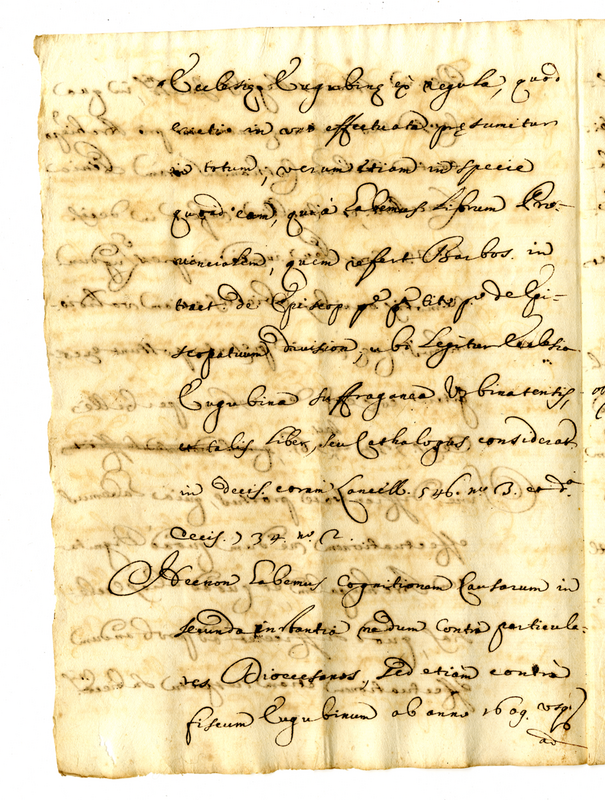 Ecclesię Eugubinę ex regula, quod
gratia in uno effectuata pręsumitur
in totum, verum etiam in specie
quoad eam, quia habemus Librum Pro-
vincialem, quem refert Barbos. in
tract. de Episcop. pe. pa. tit. pº de Epi-
scopatuum division, ubi Legitur Ecclesia
Eugubina suffraganea Urbinatensis,
et talis Liber, seu Cathalogus considerat.
in decis. coram Lancell. 546. nº 3. et da.
decis. 734. nº 2.
Necnon habemus cognitionem Causarum in
secunda instantia nedum contra particula-
res Diocesanos, sed etiam contra
fiscum Eugubinum ab anno 1609. usq.
ad